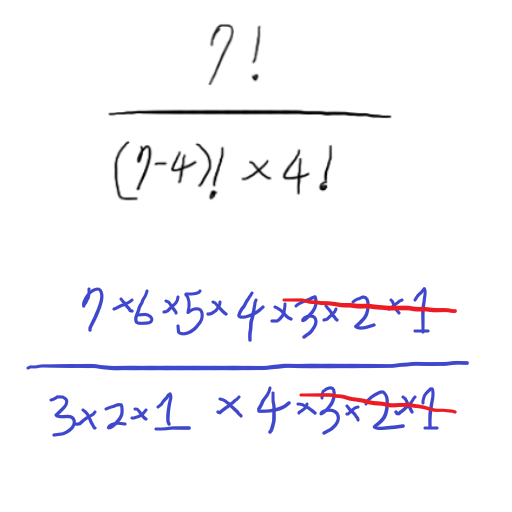 7!
(7-4)! × 4!
7×6×5×4×3×2×1
3×2×1 × 4×3×2×1